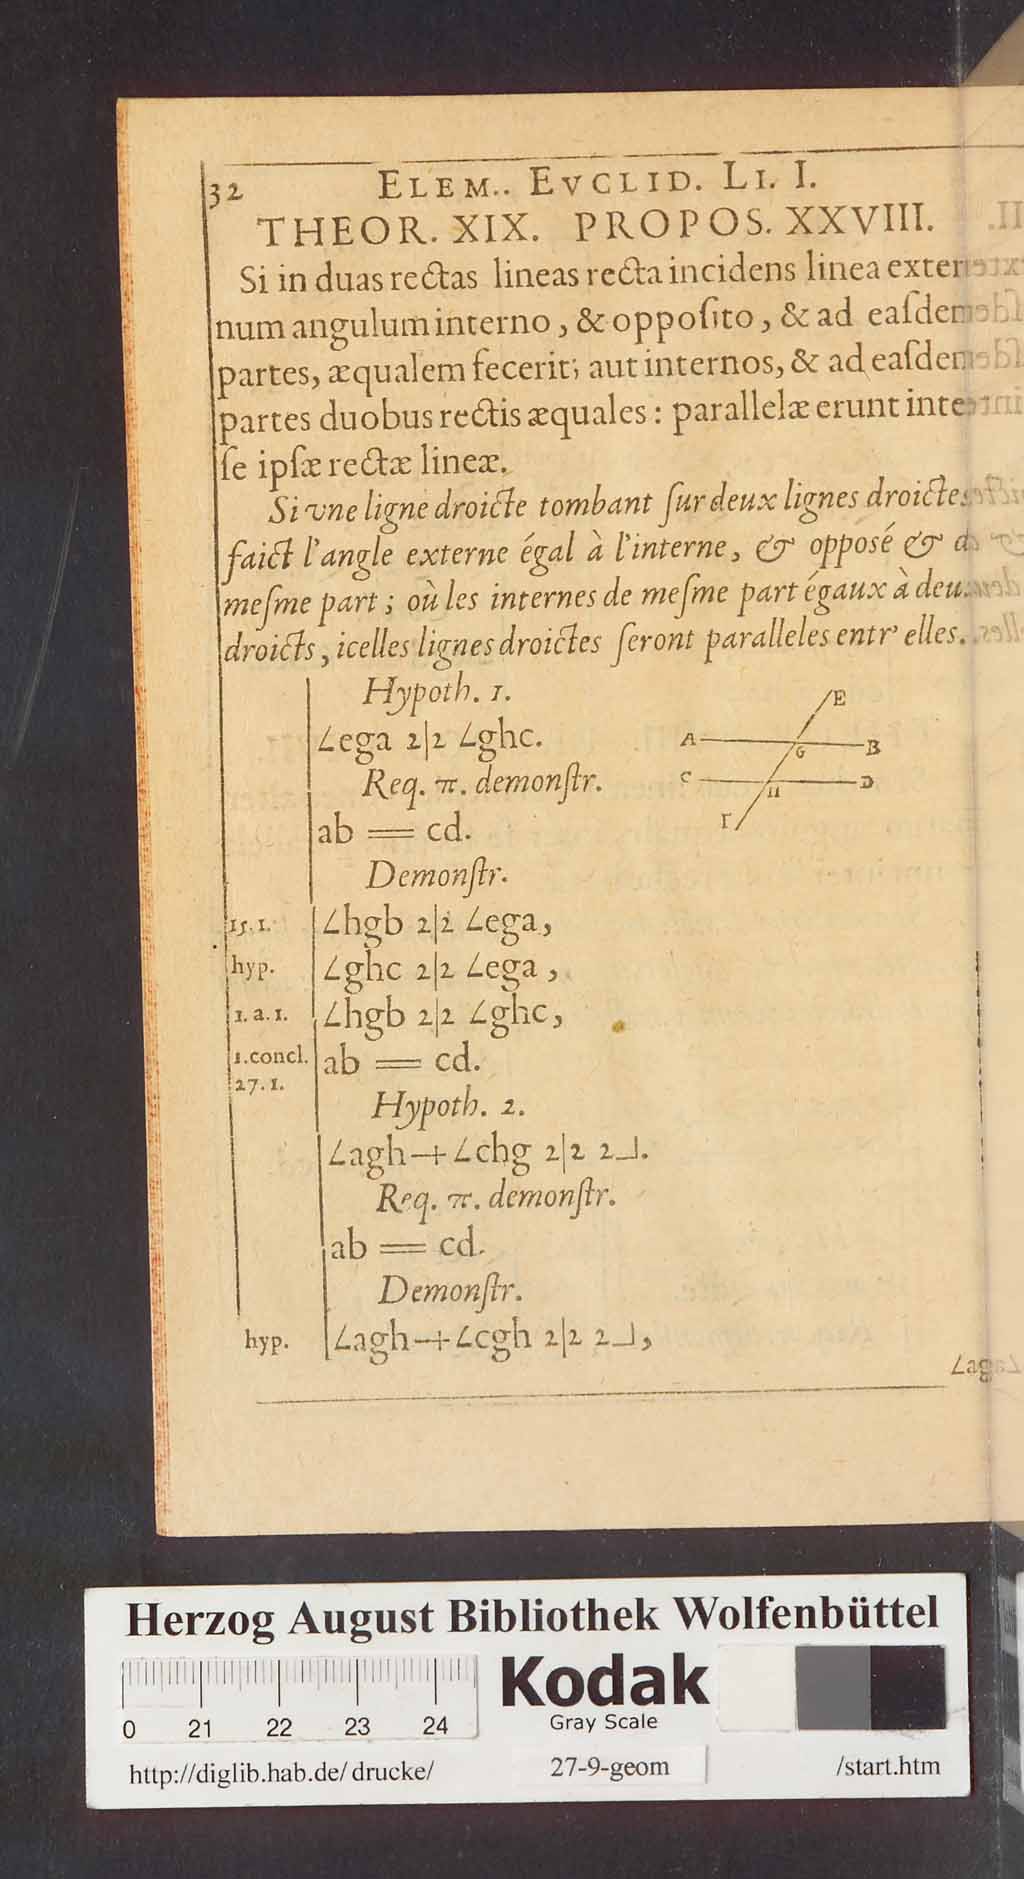 32 ELEM.. EVCLID. LI. I.
THEOR. XIX. PROPOS. XXVIII.
Si in duas rectas lineas recta incidens linea exter
num angulum interno, & oppoſito, & ad eaſdem
partes, æqualem fecerit; aut internos, & ad eaſdem
partes duobus rectis æquales: parallelæ erunt inter
ſe ipſæ rectæ lineæ.
Si vne ligne droicte tombant ſur deux lignes droictes
faict l'angle externe égal à l'interne, & opposé & d
meſme part; où les internes de meſme part égaux à deu
droicts, icelles lignes droictes ſeront paralleles entr' elles.
Hypoth. 1.
∠ega 2|2 ∠ghc.
Req. π. demonſtr.
ab = cd.
Demonſtr.
E
A B
G
C D
H
F
15. 1. ∠hgb 2|2 ∠ega,
hyp. ∠ghc 2|2 ∠ega,
1. a. 1. ∠hgb 2|2 ∠ghc,
1. concl. ab = cd.
27. 1.
Hypoth. 2.
∠agh + ∠chg 2|2 2⅃.
Req. π. demonſtr.
ab = cd.
Demonſtr.
hyp. ∠agh + ∠cgh 2|2 2⅃,
∠ag
Herzog August Bibliothek Wolfenbüttel
0 21 22 23 24
Kodak
Gray Scale
http://diglib.hab.de/drucke/ 27-9-geom /start.htm